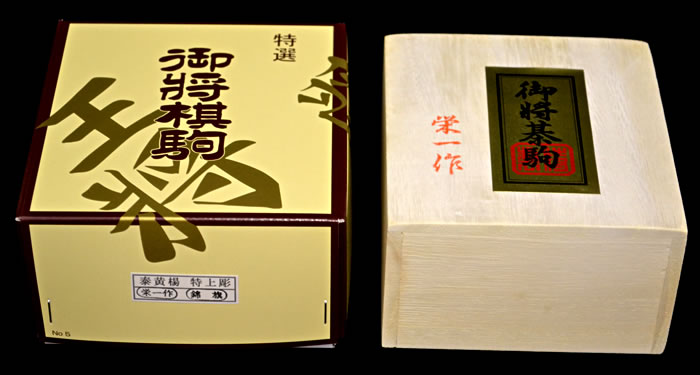 特選
御将棋駒
王将
泰黄楊 特上彫
(栄一作) (錦旗)
No 5
御将棊駒
栄一作